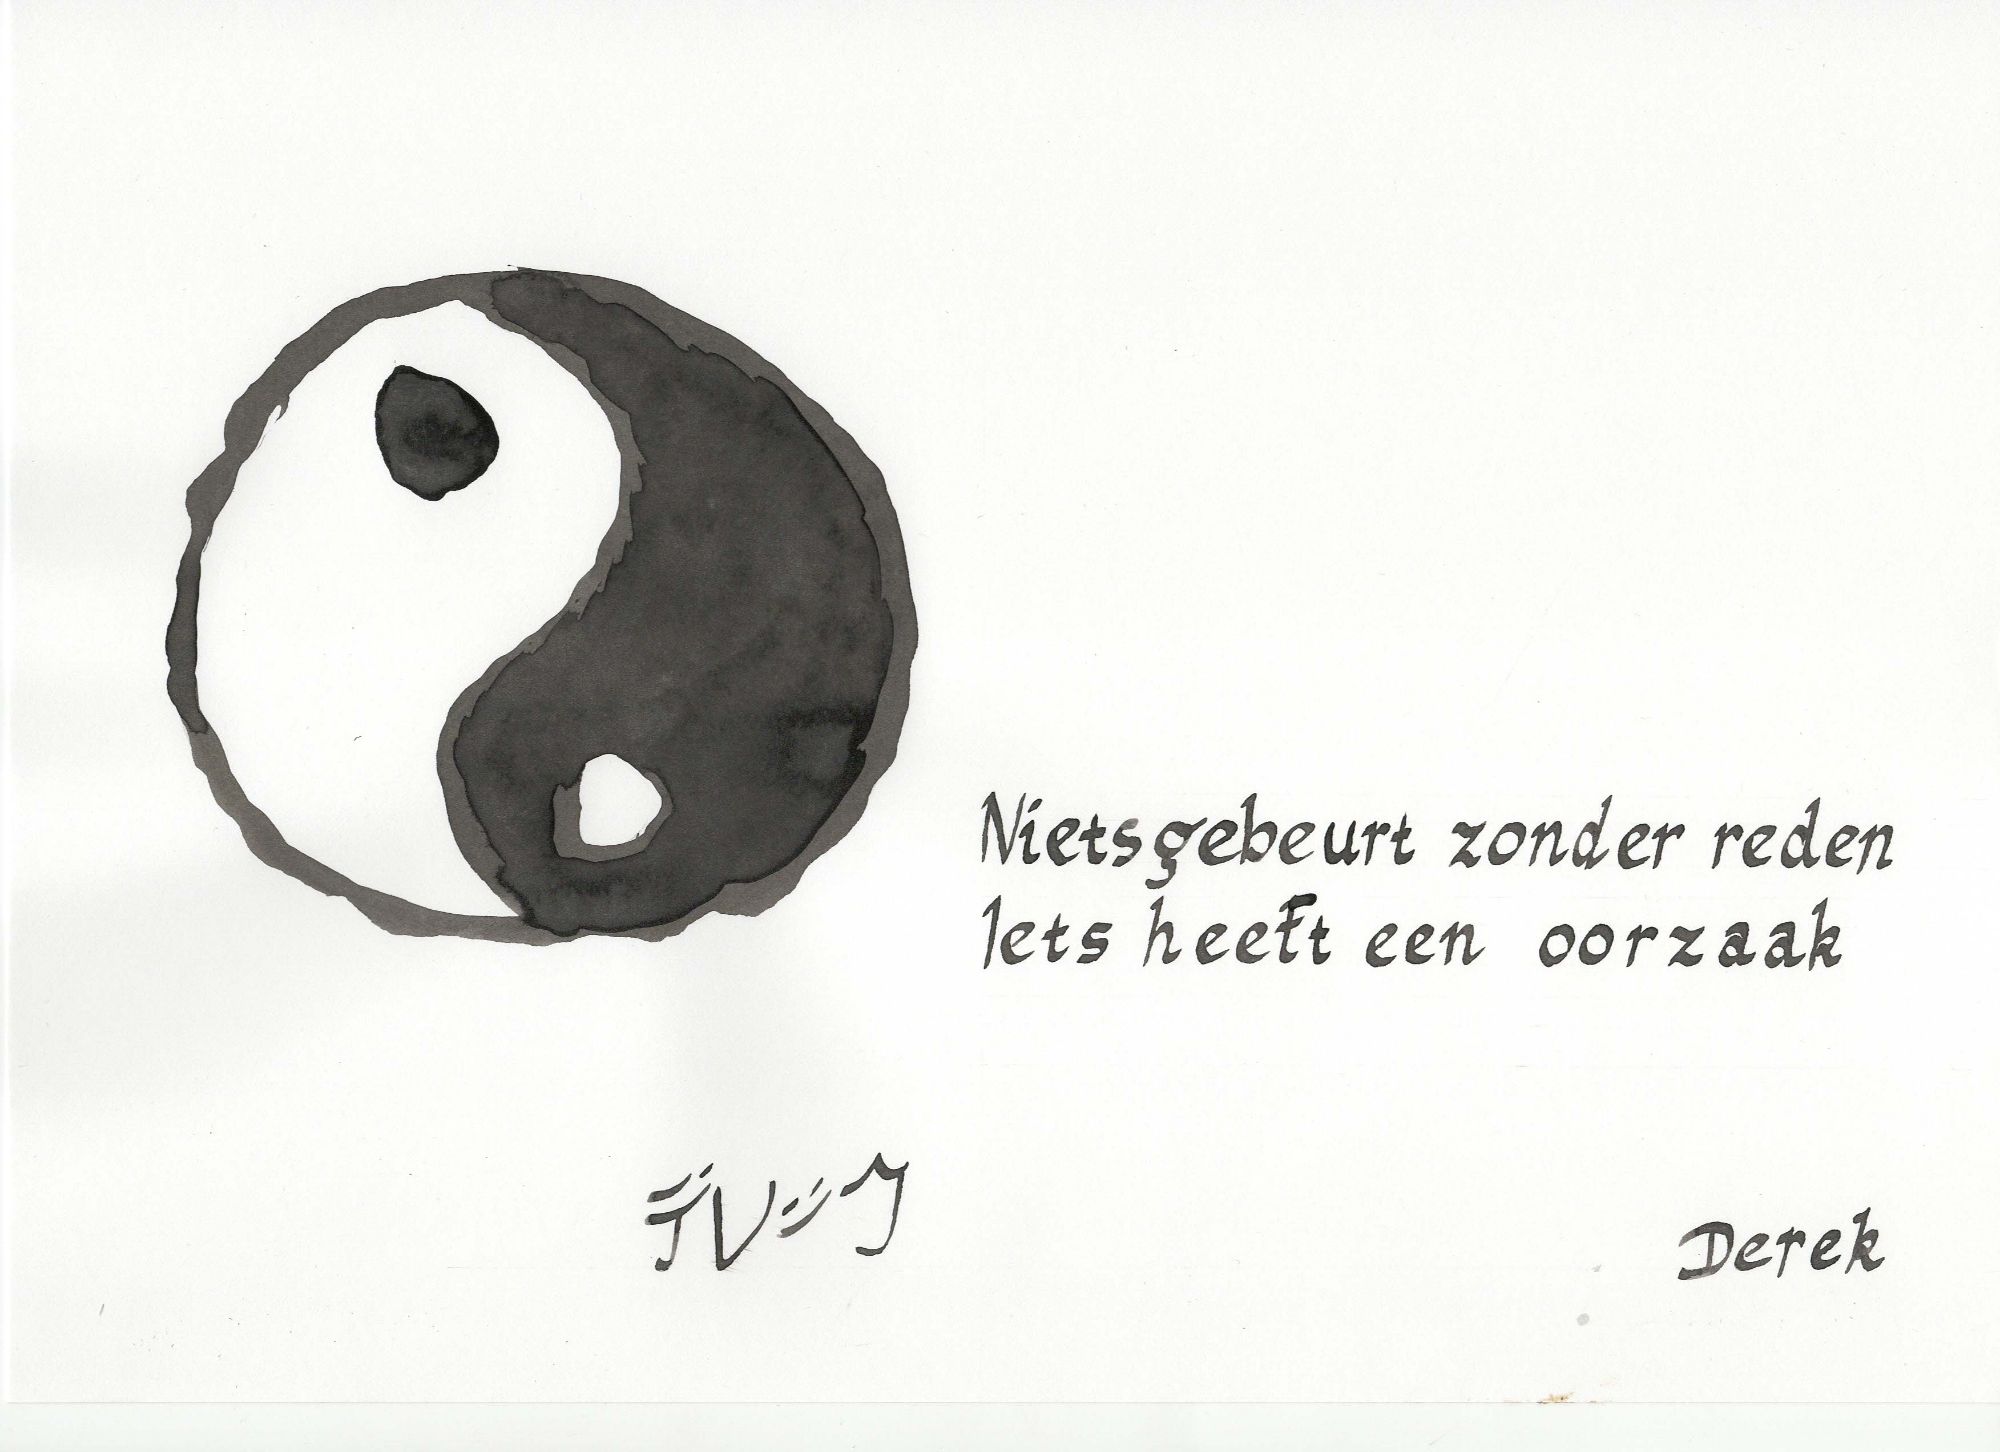 Niets gebeurt zonder reden
Iets heeft een oorzaak
Derek